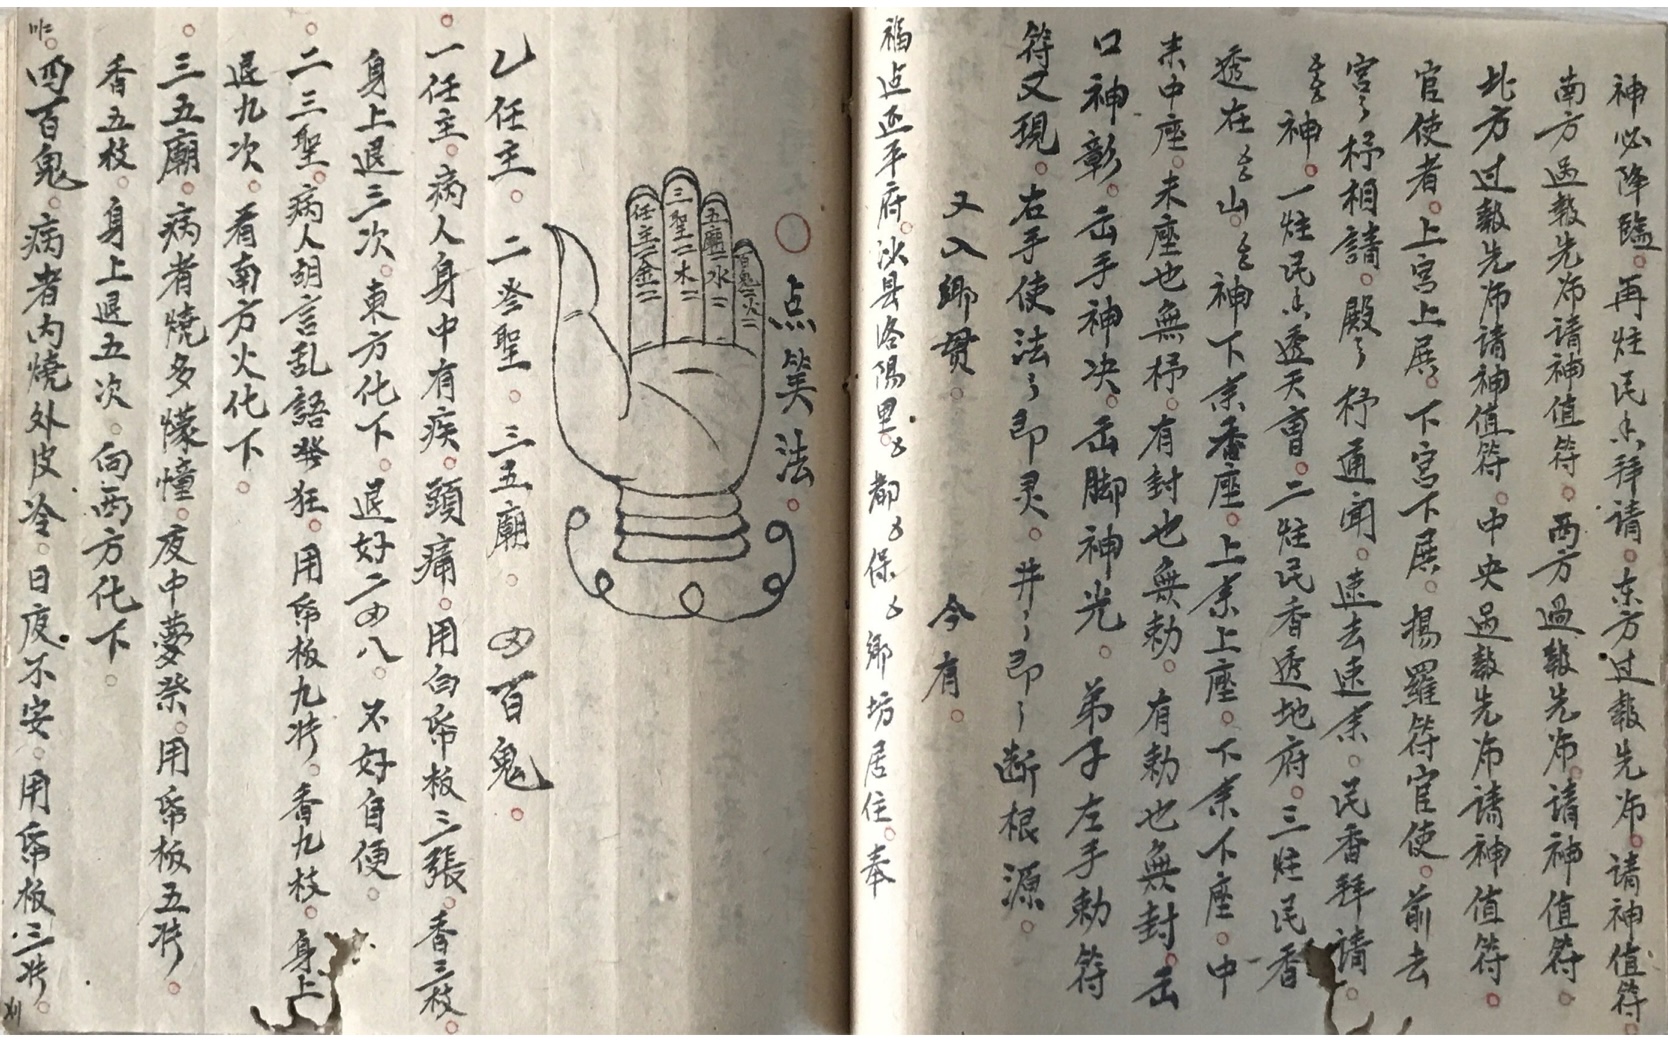 神必降臨。再炷民香拜请。东方过報先师。请神值符。
南方過報先师请神值符。西方過報先师。請神值符。
北方过報先师请神值符。中央過報先师請神值符。
官使者。上宫上展。下宫下展。楊羅符官使。前去
宫〻抒相請。殿〻抒通闻。速去速来。民香拜请。
神。一炷民香透天曹。二炷民香透地府。三炷民香
透在山神下来番座。上来上座。下来下座。中
未中座。未座也無抒。有封也無勅。有勅也無封。缶
口神彰。缶手神决。缶脚神光。弟子左手勅符
符又現。右手使法〻即灵。井〻即〻断根源。
又入鄉貫。今有。
福迠延平府沙县洛陽里〻都〻保〻鄉坊居住。奉
○点筭法。
任主二金二
三聖二木二
五廟二水二
百鬼二火二
乙任主。二叁聖。三五廟。四百鬼。
一任主。病人身中有疾。頭痛。用白帋板三張。香三枝
身上退三次。東方化下。退好二四八。不好自便。
二三聖。病人胡言乱語發狂。用帋板九张。香九枝。身上
退九次。着南方火化下。
三五廟。病者燒多懞憧。夜中夢祭。用帋板五张。
香五枝。身上退五次。向西方化下。
四百鬼。病者内燒外皮冷。日夜不安。用帋板三张。